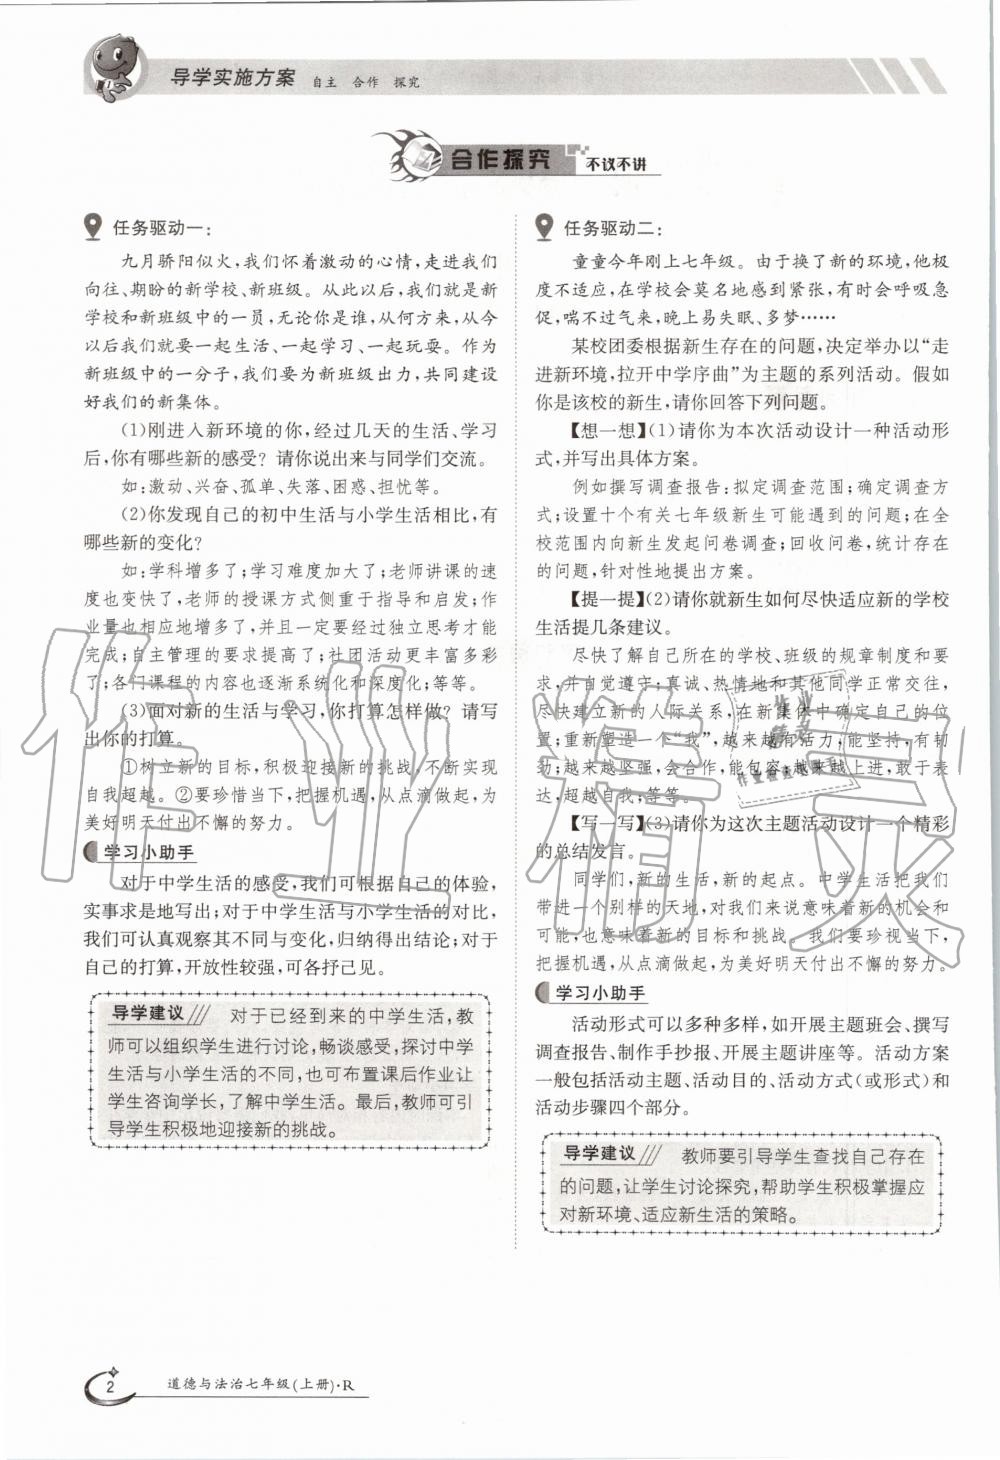 导学实施方案 自主 合作 探究
合作探究 不议不讲
任务驱动一:
九月骄阳似火,我们怀着激动的心情,走进我们
向往、期盼的新学校、新班级。从此以后,我们就是新
学校和新班级中的一员,无论你是谁,从何方来,从今
以后我们就要一起生活、一起学习、一起玩耍。作为
新班级中的一分子,我们要为新班级出力,共同建设
好我们的新集体。
(1)刚进入新环境的你,经过几天的生活、学习
后,你有哪些新的感受? 请你说出来与同学们交流。
如:激动、兴奋、孤单、失落、困惑、担忧等。
(2)你发现自己的初中生活与小学生活相比,有
哪些新的变化?
如:学科增多了;学习难度加大了;老师讲课的速
度也变快了,老师的授课方式侧重于指导和启发;作
业量也相应地增多了,并且一定要经过独立思考才能
完成;自主管理的要求提高了;社团活动更丰富多彩
了;各门课程的内容也逐渐系统化和深度化;等等。
(3)面对新的生活与学习,你打算怎样做? 请写
出你的打算。
①树立新的目标,积极迎接新的挑战,不断实现
自我超越。②要珍惜当下,把握机遇,从点滴做起,为
美好明天付出不懈的努力。
学习小助手
对于中学生活的感受,我们可根据自己的体验,
实事求是地写出;对于中学生活与小学生活的对比,
我们可认真观察其不同与变化,归纳得出结论;对于
自己的打算,开放性较强,可各抒己见。
导学建议 对于已经到来的中学生活,教
师可以组织学生进行讨论,畅谈感受,探讨中学
生活与小学生活的不同,也可布置课后作业让
学生咨询学长,了解中学生活。最后,教师可引
导学生积极地迎接新的挑战。
任务驱动二:
童童今年刚上七年级。由于换了新的环境,他极
度不适应,在学校会莫名地感到紧张,有时会呼吸急
促,喘不过气来,晚上易失眠、多梦……
某校团委根据新生存在的问题,决定举办以“走
进新环境,拉开中学序曲”为主题的系列活动。假如
你是该校的新生,请你回答下列问题。
【想一想】(1)请你为本次活动设计一种活动形
式,并写出具体方案。
例如撰写调查报告:拟定调查范围;确定调查方
式;设置十个有关七年级新生可能遇到的问题;在全
校范围内向新生发起问卷调查;回收问卷,统计存在
的问题,针对性地提出方案。
【提一提】(2)请你就新生如何尽快适应新的学校
生活提几条建议。
尽快了解自己所在的学校、班级的规章制度和要
求,并自觉遵守;真诚、热情地和其他同学正常交往,
尽快建立新的人际关系,在新集体中确定自己的位
置;重新塑造一个“我”,越来越有活力,能坚持,有韧
劲;越来越坚强,会合作,能包容;越来越上进,敢于表
达,超越自我;等等。
【写一写】(3)请你为这次主题活动设计一个精彩
的总结发言。
同学们,新的生活,新的起点。中学生活把我们
带进一个别样的天地,对我们来说意味着新的机会和
可能,也意味着新的目标和挑战。我们要珍视当下,
把握机遇,从点滴做起,为美好明天付出不懈的努力。
学习小助手
活动形式可以多种多样,如开展主题班会、撰写
调查报告、制作手抄报、开展主题讲座等。活动方案
一般包括活动主题、活动目的、活动方式(或形式)和
活动步骤四个部分。
导学建议 教师要引导学生查找自己存在
的问题,让学生讨论探究,帮助学生积极掌握应
对新环境、适应新生活的策略。
2 道德与法治七年级(上册)·R
作业精灵